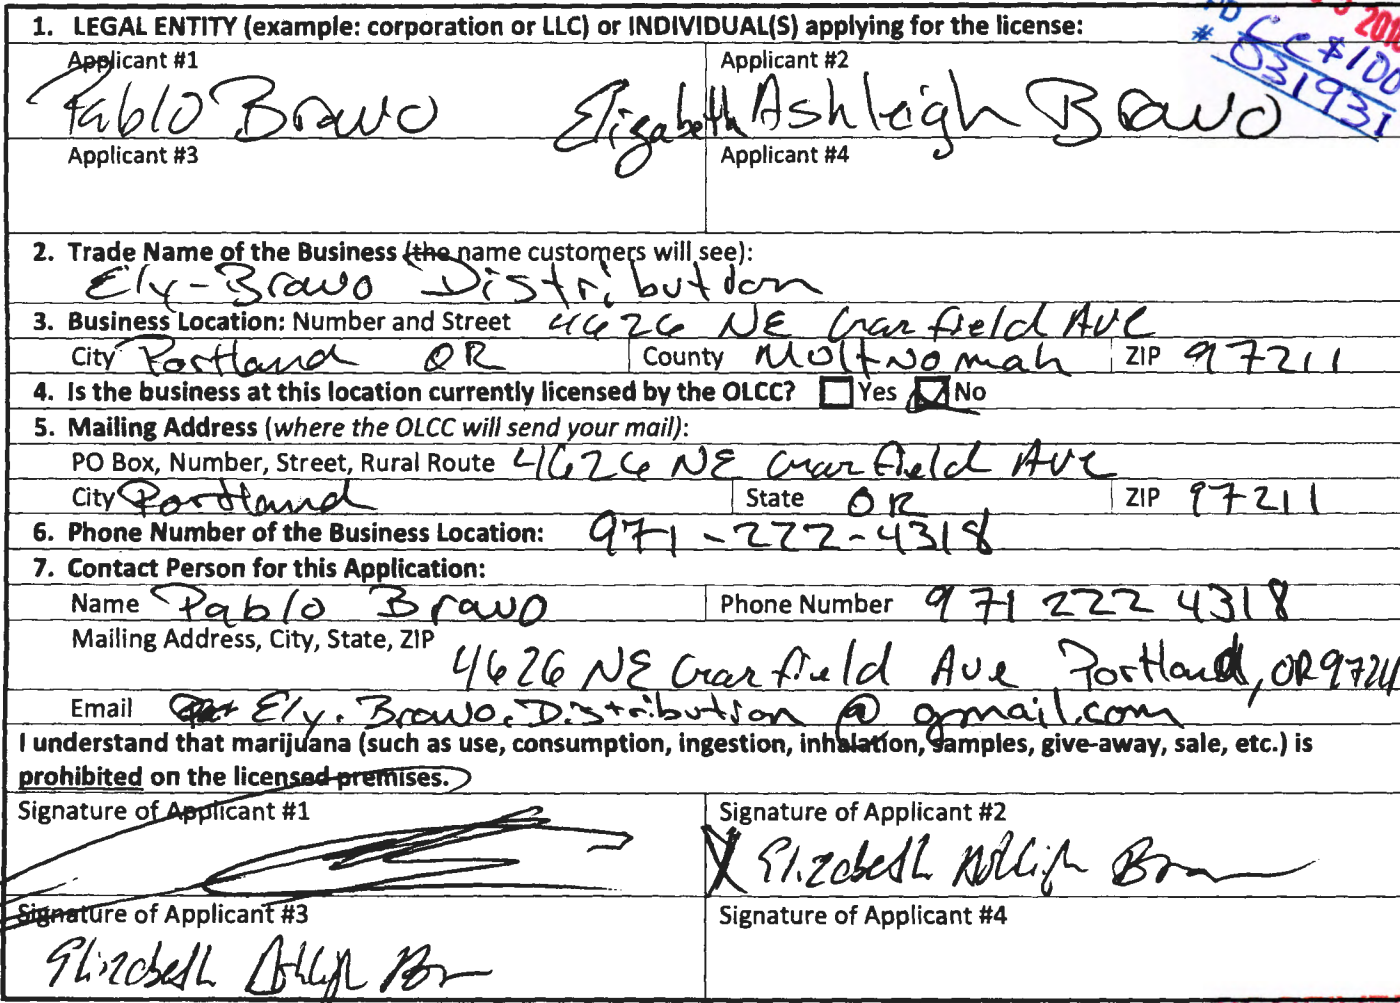 1. LEGAL ENTITY (example: corporation or LLC) or INDIVIDUAL(S) applying for the license:
PD
2016
# CC $100
031931
Applicant #1 Applicant #2
Pablo Bravo Elizabeth Ashleigh Bravo
Applicant #3 Applicant #4
2. Trade Name of the Business (the name customers will see):
Ely-Bravo Distribution
3. Business Location: Number and Street 4626 NE Garfield Ave
City Portland OR County Moltnomah ZIP 97211
4. Is the business at this location currently licensed by the OLCC? Yes No
5. Mailing Address (where the OLCC will send your mail):
PO Box, Number, Street, Rural Route 4626 NE Garfield Ave
City Portland State OR ZIP 97211
6. Phone Number of the Business Location: 971-222-4318
7. Contact Person for this Application:
Name Pablo Bravo Phone Number 971 222 4318
Mailing Address, City, State, ZIP 4626 NE Garfield Ave Portland, OR 97211
Email Ely.Bravo.Distribution@gmail.com
I understand that marijuana (such as use, consumption, ingestion, inhalation, samples, give-away, sale, etc.) is
prohibited on the licensed premises.
Signature of Applicant #1 Signature of Applicant #2
X Elizabeth Ashleigh Bravo
Signature of Applicant #3 Signature of Applicant #4
Elizabeth Ashleigh Bravo